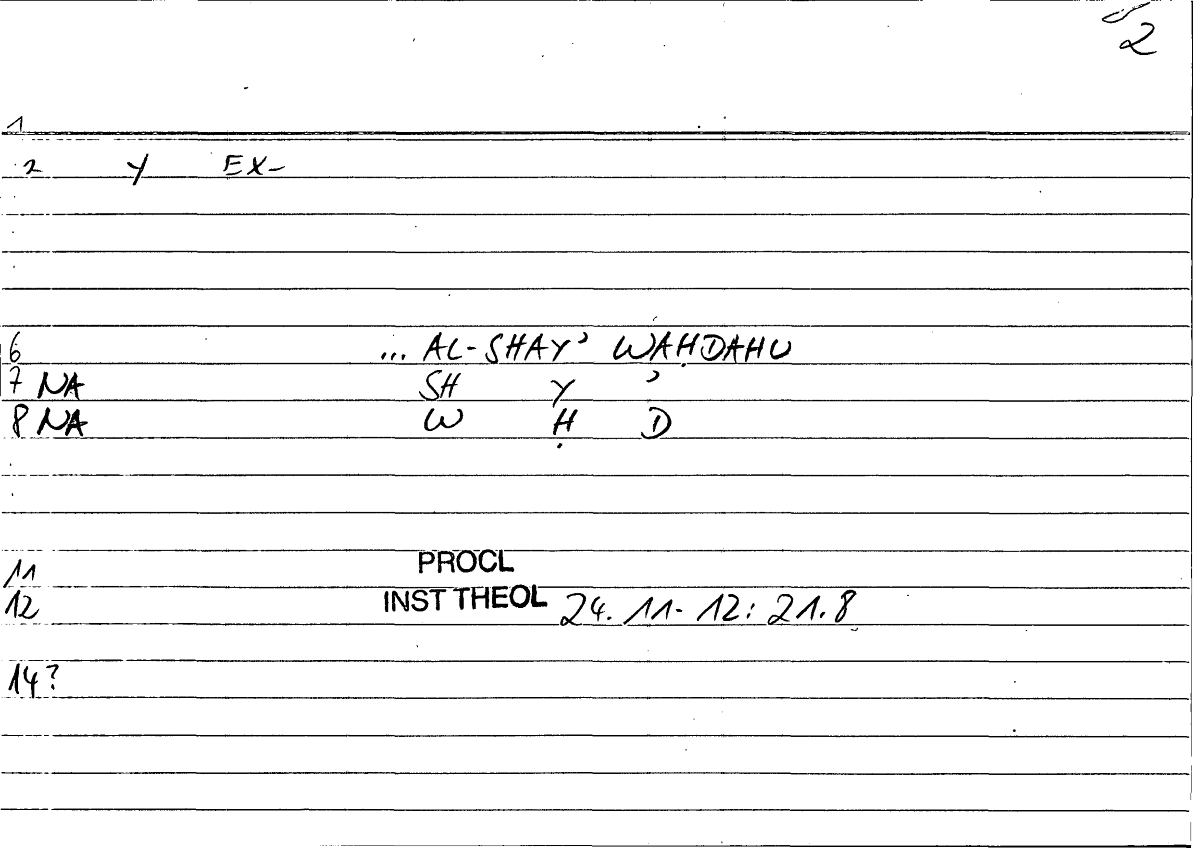 2
1
2 Y EX-
6 ... AL-SHAYʾ WAḤDAHU
7 NA SH Y ʾ
8 NA W Ḥ D
11 PROCL
12 INST THEOL 24. 11-12: 21.8
14?